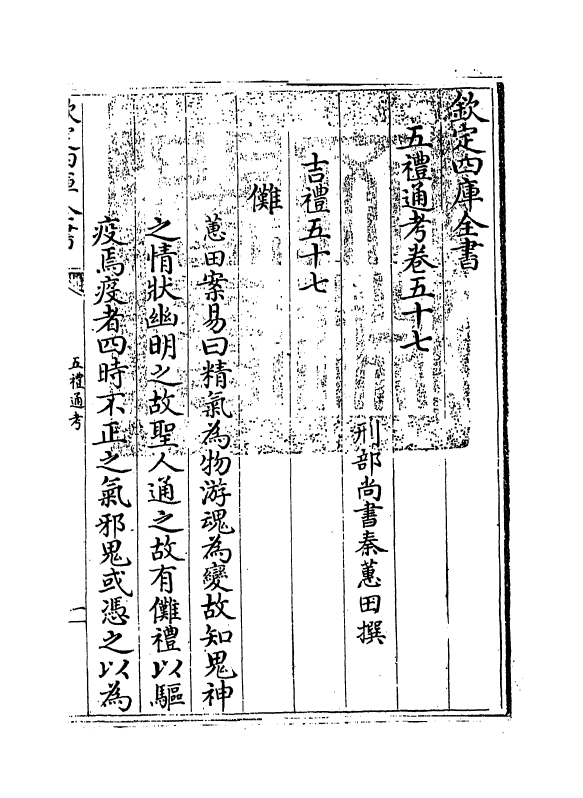 欽定四庫全書
五禮通考卷五十七
刑部尚書秦蕙田撰
吉禮五十七
儺
蕙田案易曰精氣為物游魂為變故知鬼神
之情狀幽明之故聖人通之故有儺禮以驅
疫焉疫者四時不正之氣邪鬼或憑之以為
欽定四庫全書
五禮通考
一